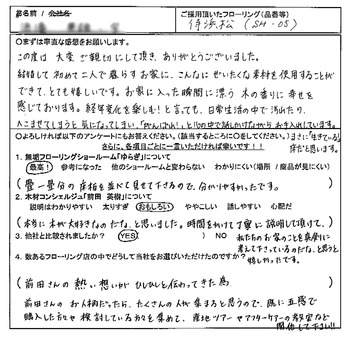 お名前／会社名
ご採用頂いたフローリング（品番等）
（SH-05）
○まずは率直な感想をお願いします。
この度は 大変 ご親切にして頂き、ありがとうございました。
結婚して 初めて 二人で 暮らす お家に、こんなに ぜいたくな 素材を 使用することが
できて、とても 嬉しいです。お家に 入った 瞬間に 漂う 木の香りに 幸せを
感じております。経年変化を楽しむ！と言っても、日常生活の中で 汚れたり、
へこませてしまうと 気になってしまい、
○よろしければ以下のアンケートにもお答えください。（該当するところに○をしてください。）
さらに、各項目ごとに一言いただければ幸いです！！
1. 無垢フローリングショールーム「ゆらぎ」について
最高！ 参考になった 他のショールームと変わらない わかりにくい（場所 / 商品が見にくい）
（畳一畳分の 床板を 並べて 見せて下さるので、分かりやすかったです。）
2. 木材コンシェルジュ「前田 英樹」について
説明はわかりやすい 太りすぎ おもしろい ややこしい 話しやすい 心配だ
（本当に 木が大好きなのだな、と思いました。時間をかけて 丁寧に 説明して頂いて、
3. 他社と比較されましたか？ YES NO
私たちのお家のことを 真剣に
考えて下さっているのだな、と思うと
嬉しかったです。
4. 数あるフローリング店の中でどうして当社をお選びいただけたのですか？
（前田さんの 熱い 想いが ひしひしと 伝わってきた為
前田さんの お人柄だったら、たくさんの人が 集まると思うので、
購入した方や 検討している方々を 集めて、産地ツアーや アフターケアーの 教室など
開催して下さい!!